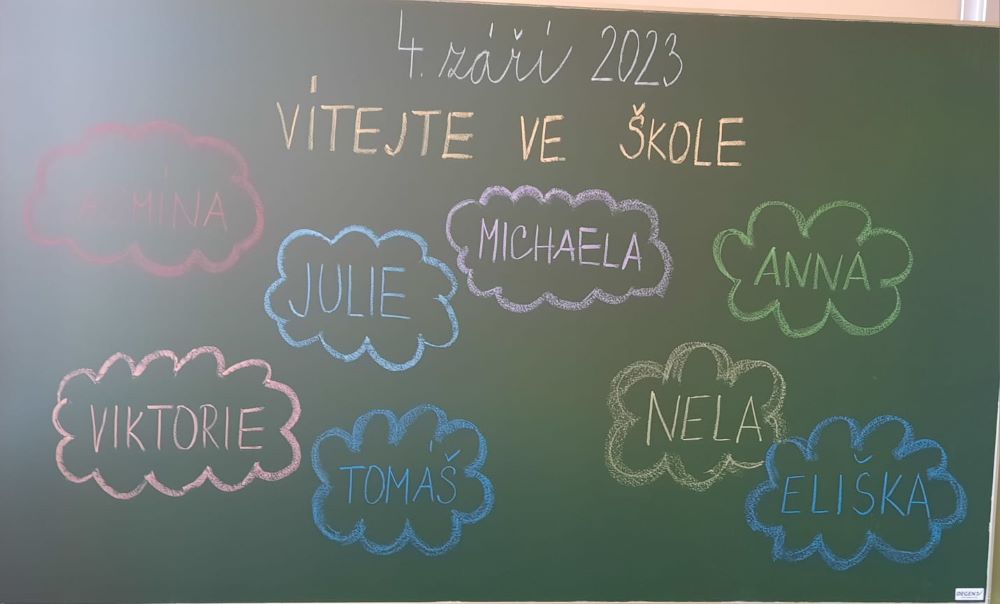 4. září 2023
VÍTEJTE VE ŠKOLE
MICHAELA
JULIE
ANNA
VIKTORIE
NELA
TOMÁŠ
ELIŠKA